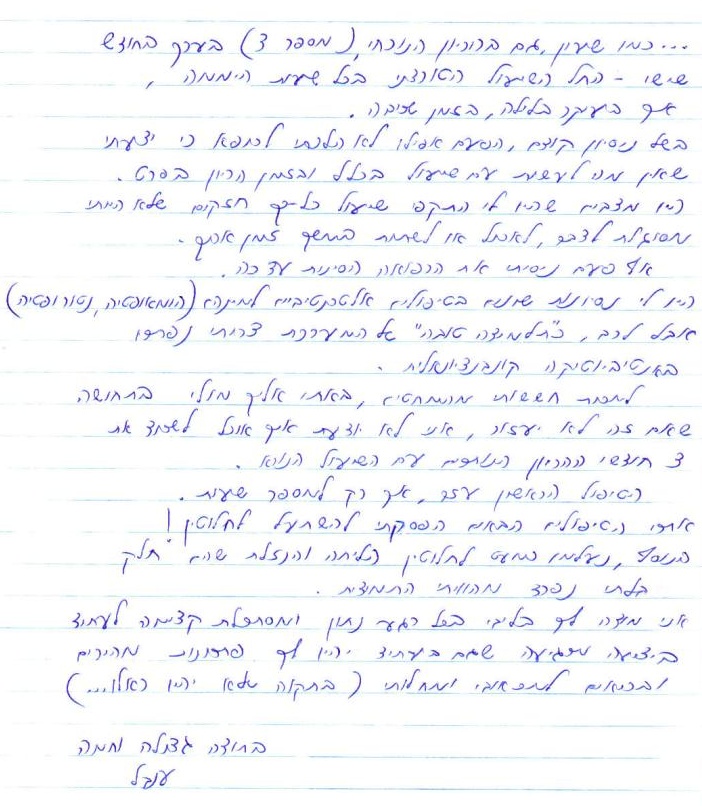 ...כמו שעון, גם בהריון הנוכחי, (מספר 3) בערך בחודש
שישי - החל השיעול הטורדני בכל שעות היממה,
אך בעיקר בלילה, בזמן שכיבה.
בשל ניסיון קודם, הפעם אפילו לא הלכתי לרופא כי ידעתי
שאין מה לעשות עם שיעול בכלל ובזמן הריון בפרט.
היו מצבים שהיו לי התקפי שיעול כל-כך חזקים שלא הייתי
מסוגלת לדבר, לאכול או לשתות במשך זמן ארוך.
אף פעם ניסיתי את הרפואה הסינית עד כה.
היו לי נסיונות שונים בטיפולים אלטרנטיביים למיניהם (הומאופטיה, נטורופטיה)
אבל לרוב, כ"תלמידה טובה" של המערכת צרותי נפתרו
באנטיביוטיקה קונבנציונאלית.
למרות חששותי מהמחטים, באתי אליך מולי בתחושה
שאם זה לא יעזור, אני לא יודעת איך אוכל לשרוד את
3 חודשי ההריון הנותרים עם השיעול הנורא.
הטיפול הראשון עזר, אך רק למספר שעות.
אחרי הטיפולים הבאים הפסקתי להשתעל לחלוטין!
בנוסף, נעלמו כמעט לחלוטין הליחה והנזלת שהם "חלק
בלתי נפרד מהוויתי התמידית.
אני מודה לך בליבי בכל רגע נתון ומסתכלת קדימה לעתיד
בידיעה מרגיעה שגם בעתיד יהיו לך פתרונות מהירים
ובריאים למכאובי ומחלותי (בתקוה שלא יהיו כאלו...)
בתודה גדולה וחמה
ענבל